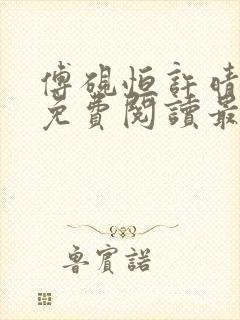 傅硯恒許晴
免費閱讀最
魯賓諾